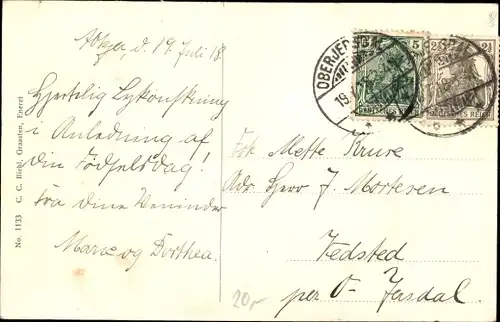 d. 19 Juli 18.
Hjertelig Lykønskning
i Anledning af
din Fødselsdag!
fra dine Veninder
Marie og Dorthea.
No. 1133 C. C. Biehl, Graasten, Eneret
OBERJER
19.
5 5
DEUTSCHES REICH
2½ 2½
DEUTSCHES REICH
Frk Mette Krure
Adr Herr J. Mortesen
Vedsted
per O- Jersdal.
20,-